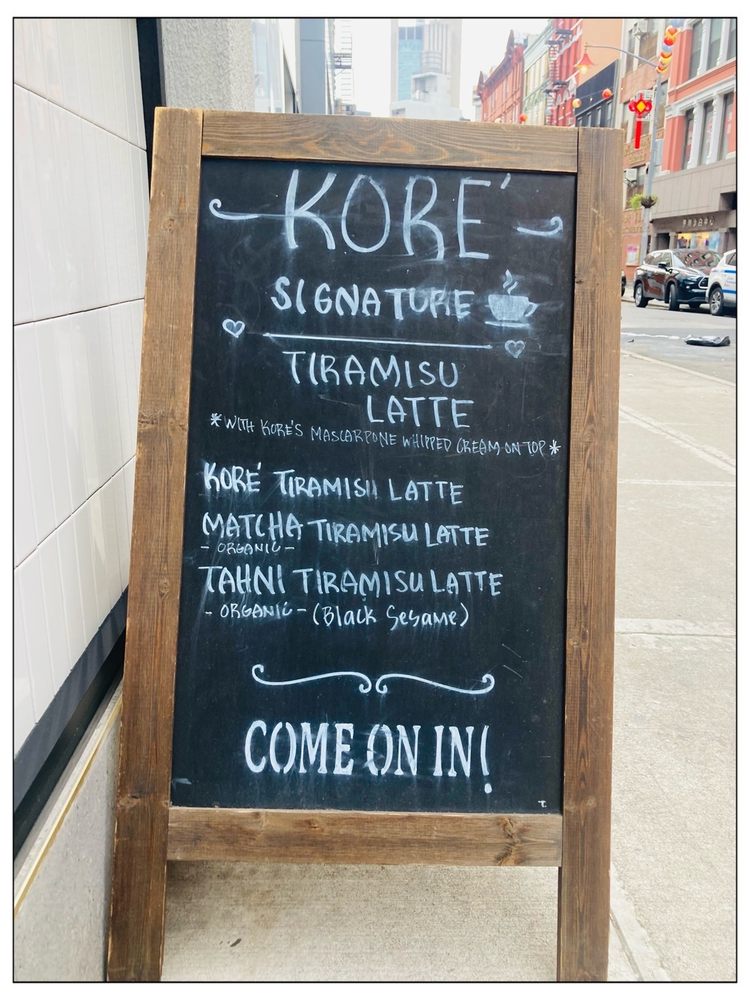 KORÉ
SIGNATURE
TIRAMISU
LATTE
*WITH KORE'S MASCARPONE WHIPPED CREAM ON TOP*
KORÉ TIRAMISU LATTE
MATCHA TIRAMISU LATTE
- ORGANIC -
TAHNI TIRAMISU LATTE
- ORGANIC - (Black Sesame)
COME ON IN!